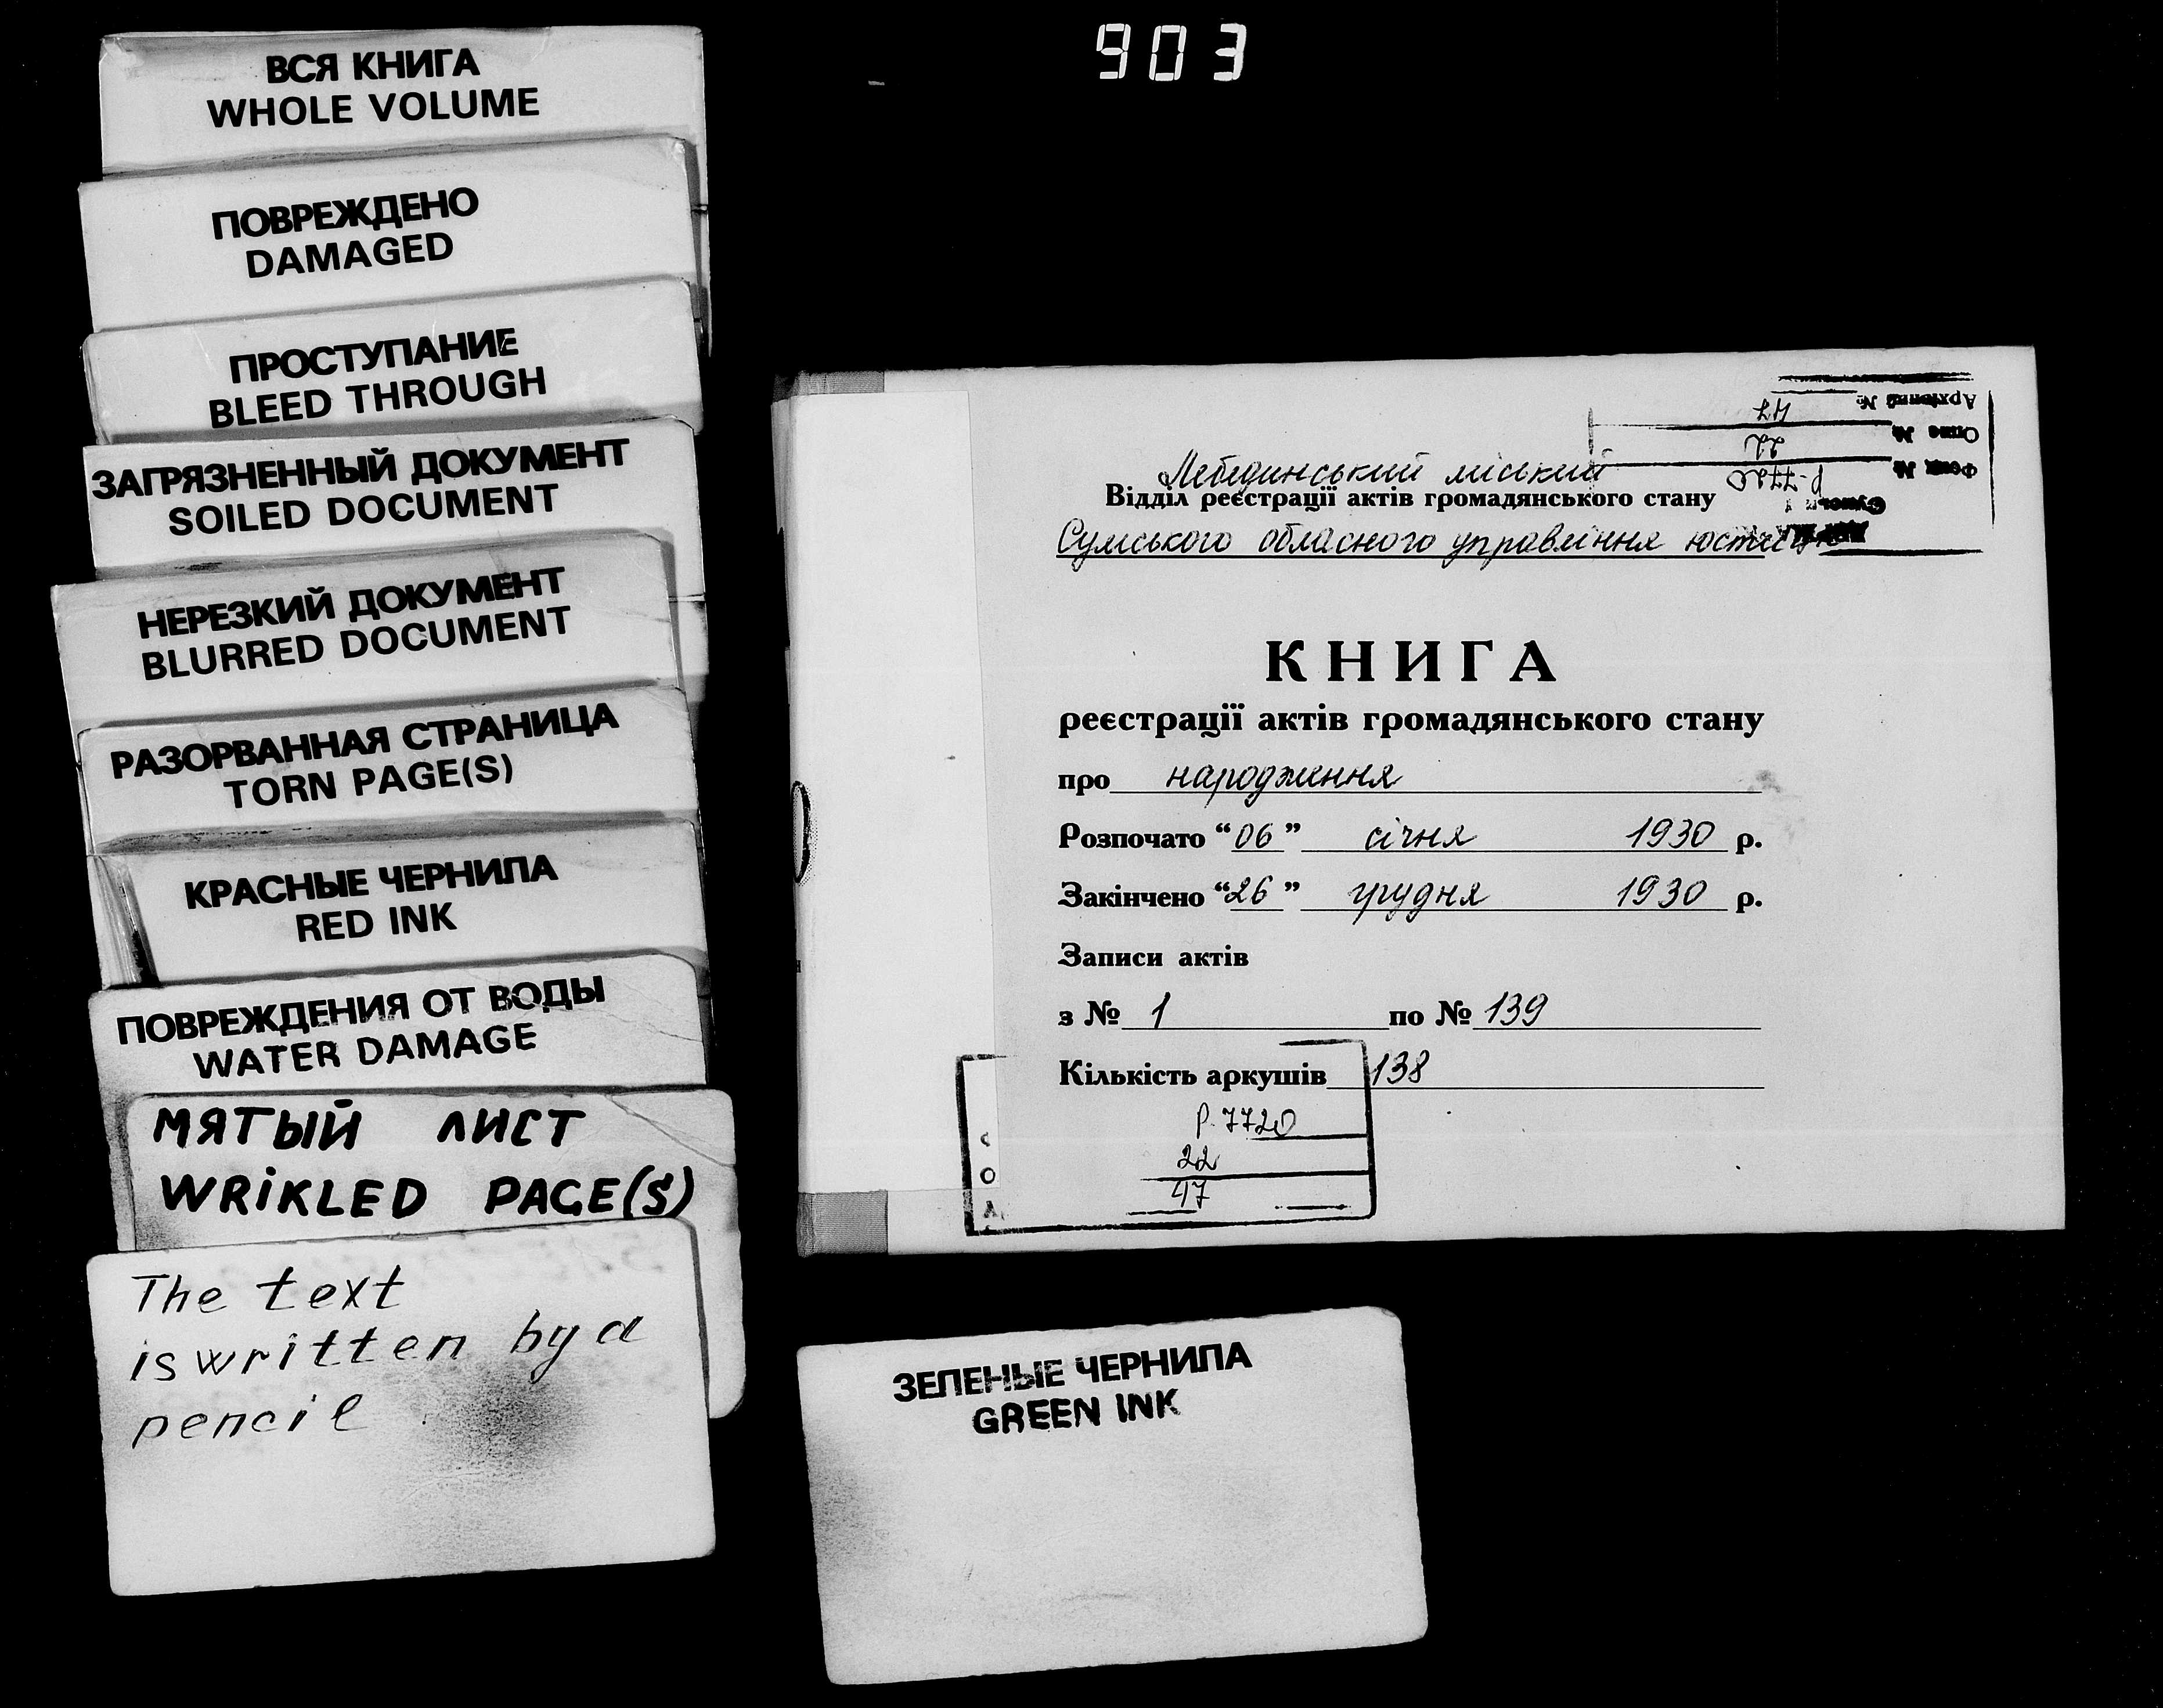 903
ВСЯ КНИГА
WHOLE VOLUME
ПОВРЕЖДЕНО
DAMAGED
ПРОСТУПАНИЕ
BLEED THROUGH
ЗАГРЯЗНЕННЫЙ ДОКУМЕНТ
SOILED DOCUMENT
НЕРЕЗКИЙ ДОКУМЕНТ
BLURRED DOCUMENT
РАЗОРВАННАЯ СТРАНИЦА
TORN PAGE(S)
КРАСНЫЕ ЧЕРНИЛА
RED INK
ПОВРЕЖДЕНИЯ ОТ ВОДЫ
WATER DAMAGE
МЯТЫЙ ЛИСТ
WRIKLED PAGE(S)
The text
is written by a
pencil
Фонд № Р-7720
Опис № 22
Архівний № 47
Лебединський міський
Відділ реєстрації актів громадянського стану
Сумського обласного управління юстиції
КНИГА
реєстрації актів громадянського стану
про народження
Розпочато “06” січня 1930 р.
Закінчено “26” грудня 1930 р.
Записи актів
з № 1 по № 139
Кількість аркушів 138
Р. 7720
22
47
ЗЕЛЕНЫЕ ЧЕРНИЛА
GREEN INK